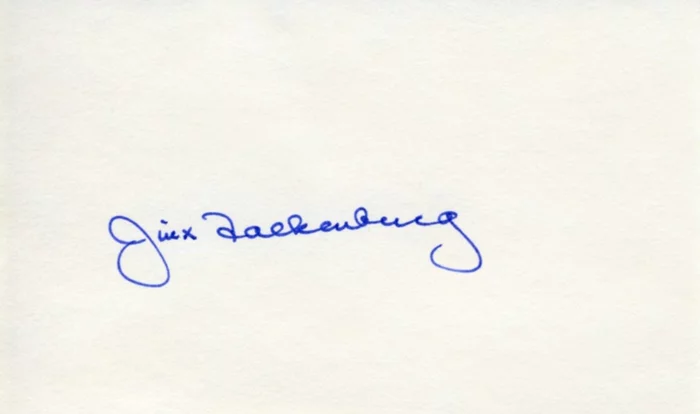 Jinx Falkenburg